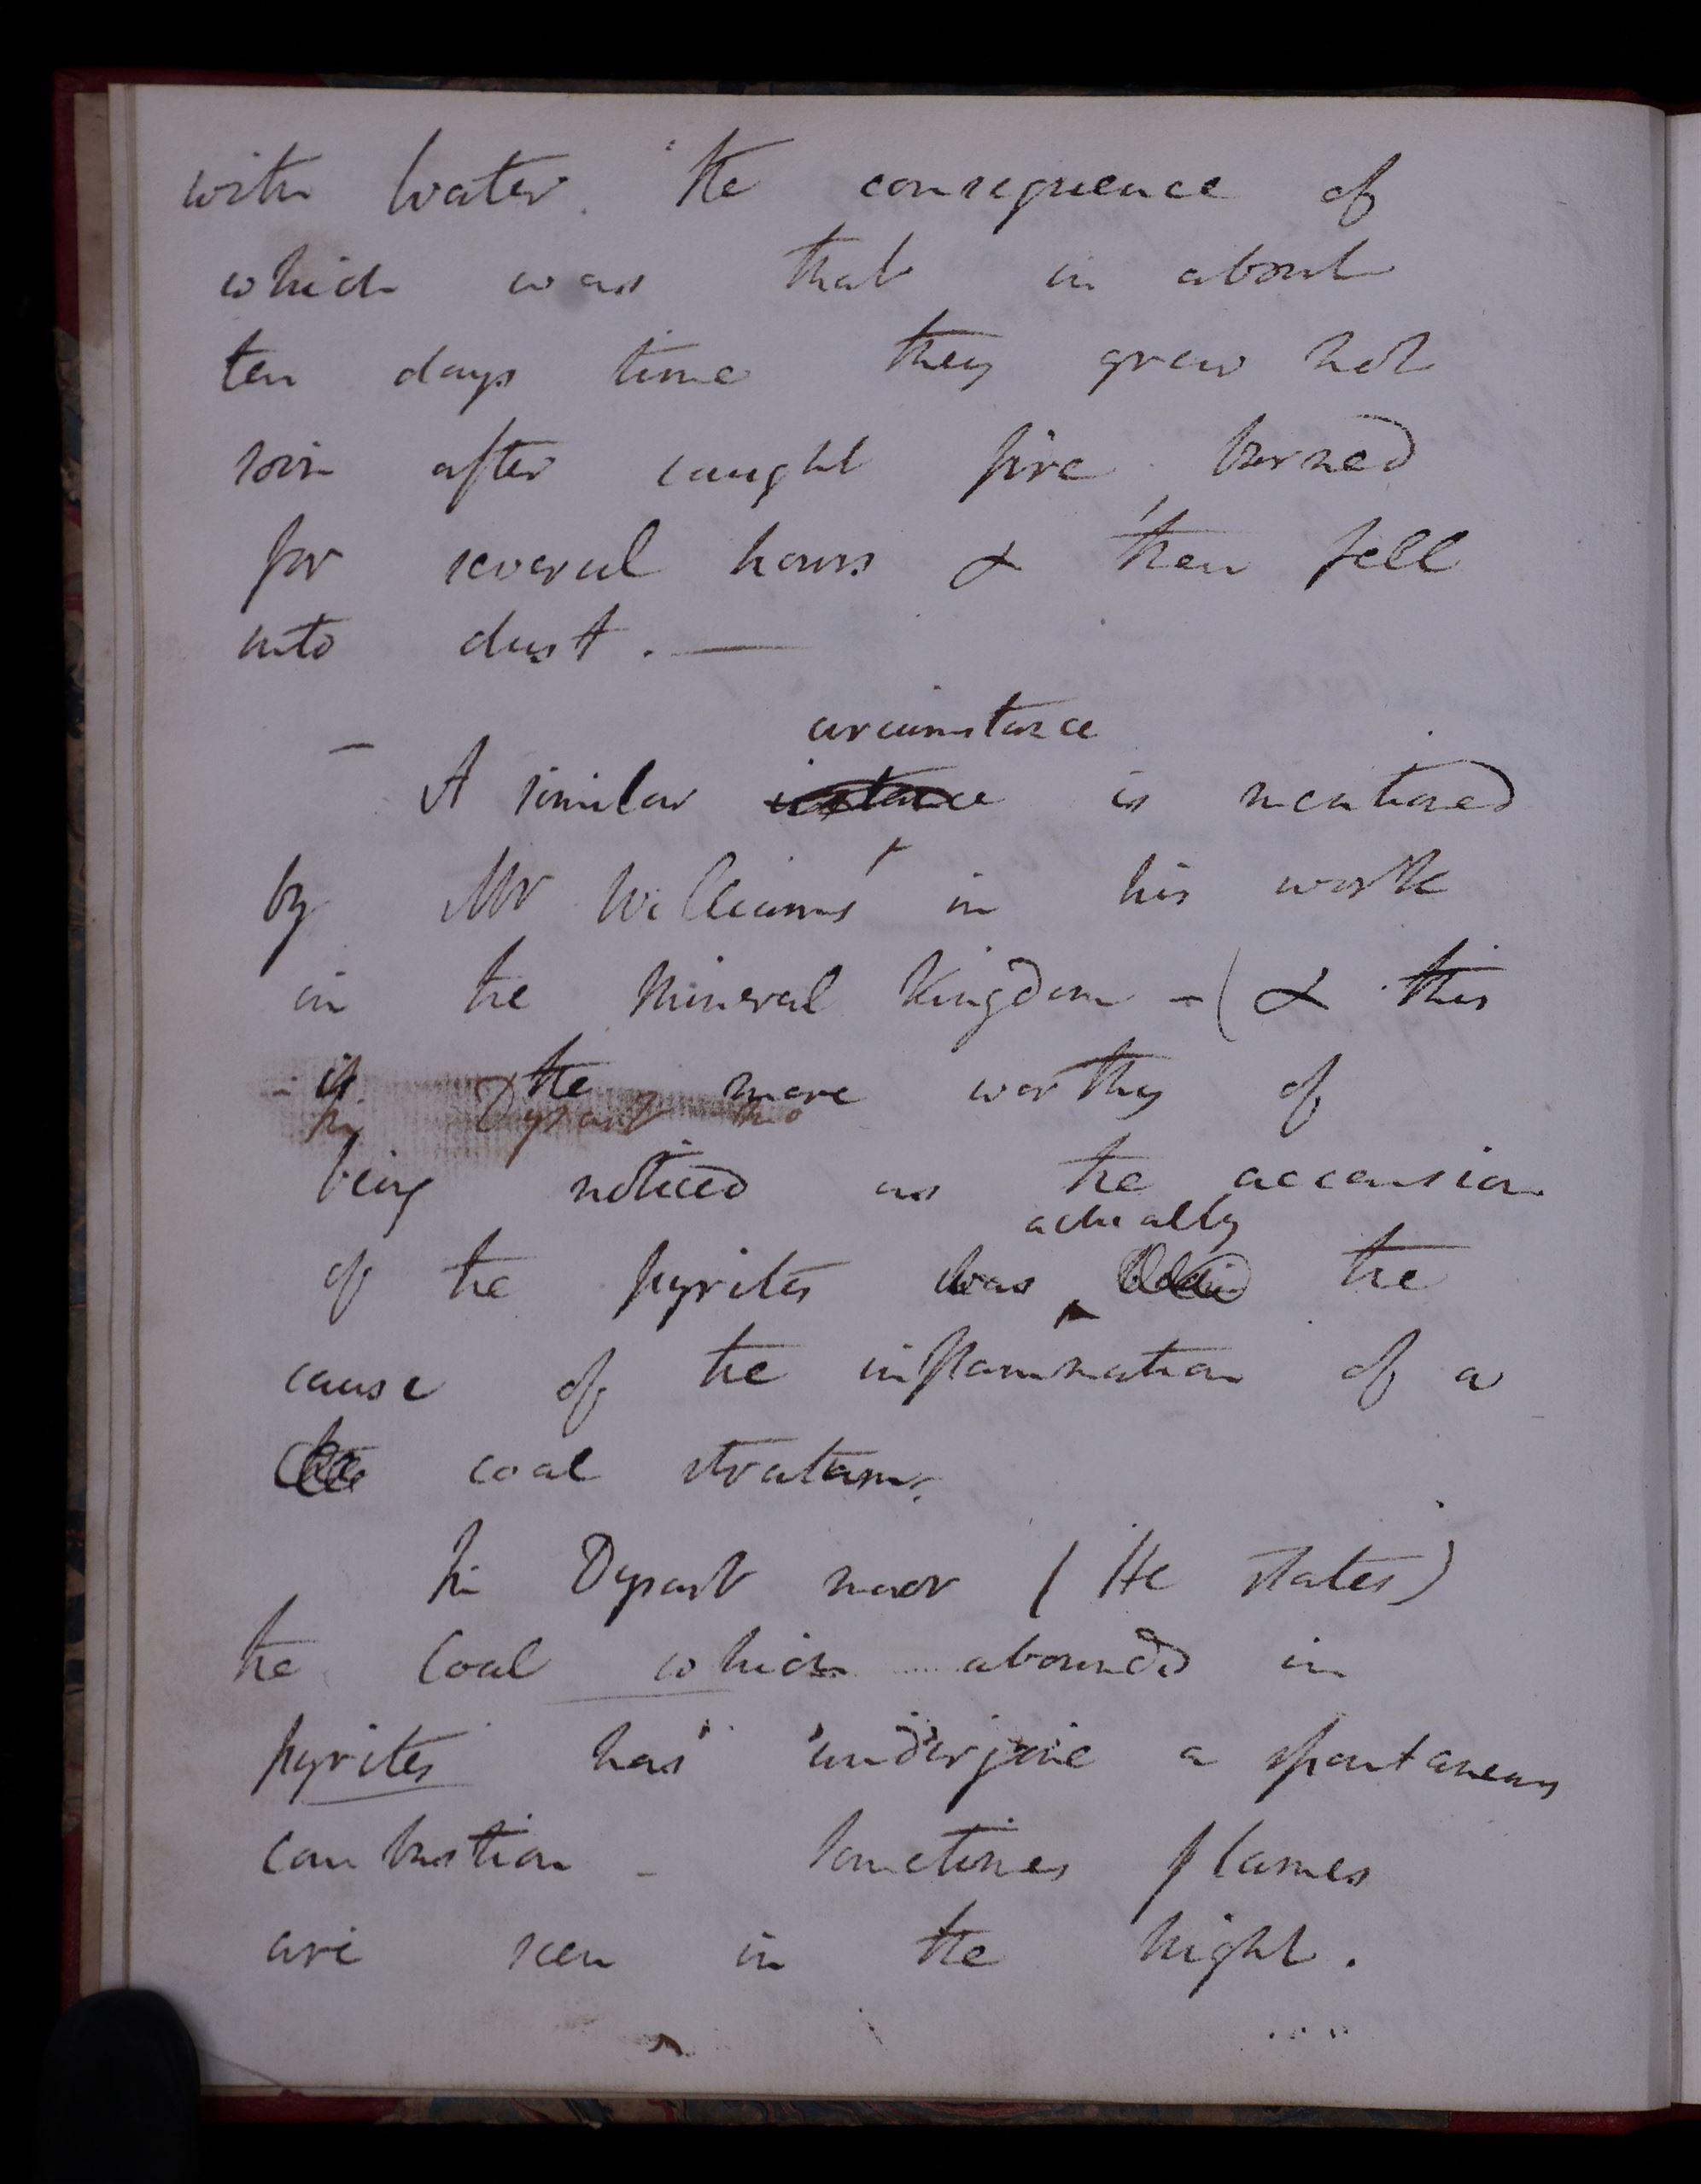 with water. the consequence of
which was that in about
ten days time they grew hot
soon after caught fire burned
for several hours & then fell
into dust. —
circumstance
— A similar instance is mentioned
by Mr Williams in his work
in the Mineral Kingdom - ( & this
is the more worthy of
In Dysart
being noticed as the accension
actually
of the pyrites was the
cause of the inflammation of a
coal stratum.
In Dysart moor ( He states )
the Coal which abounds in
pyrites has undergone a spontaneous
combustion - Sometimes flames
are seen in the night.